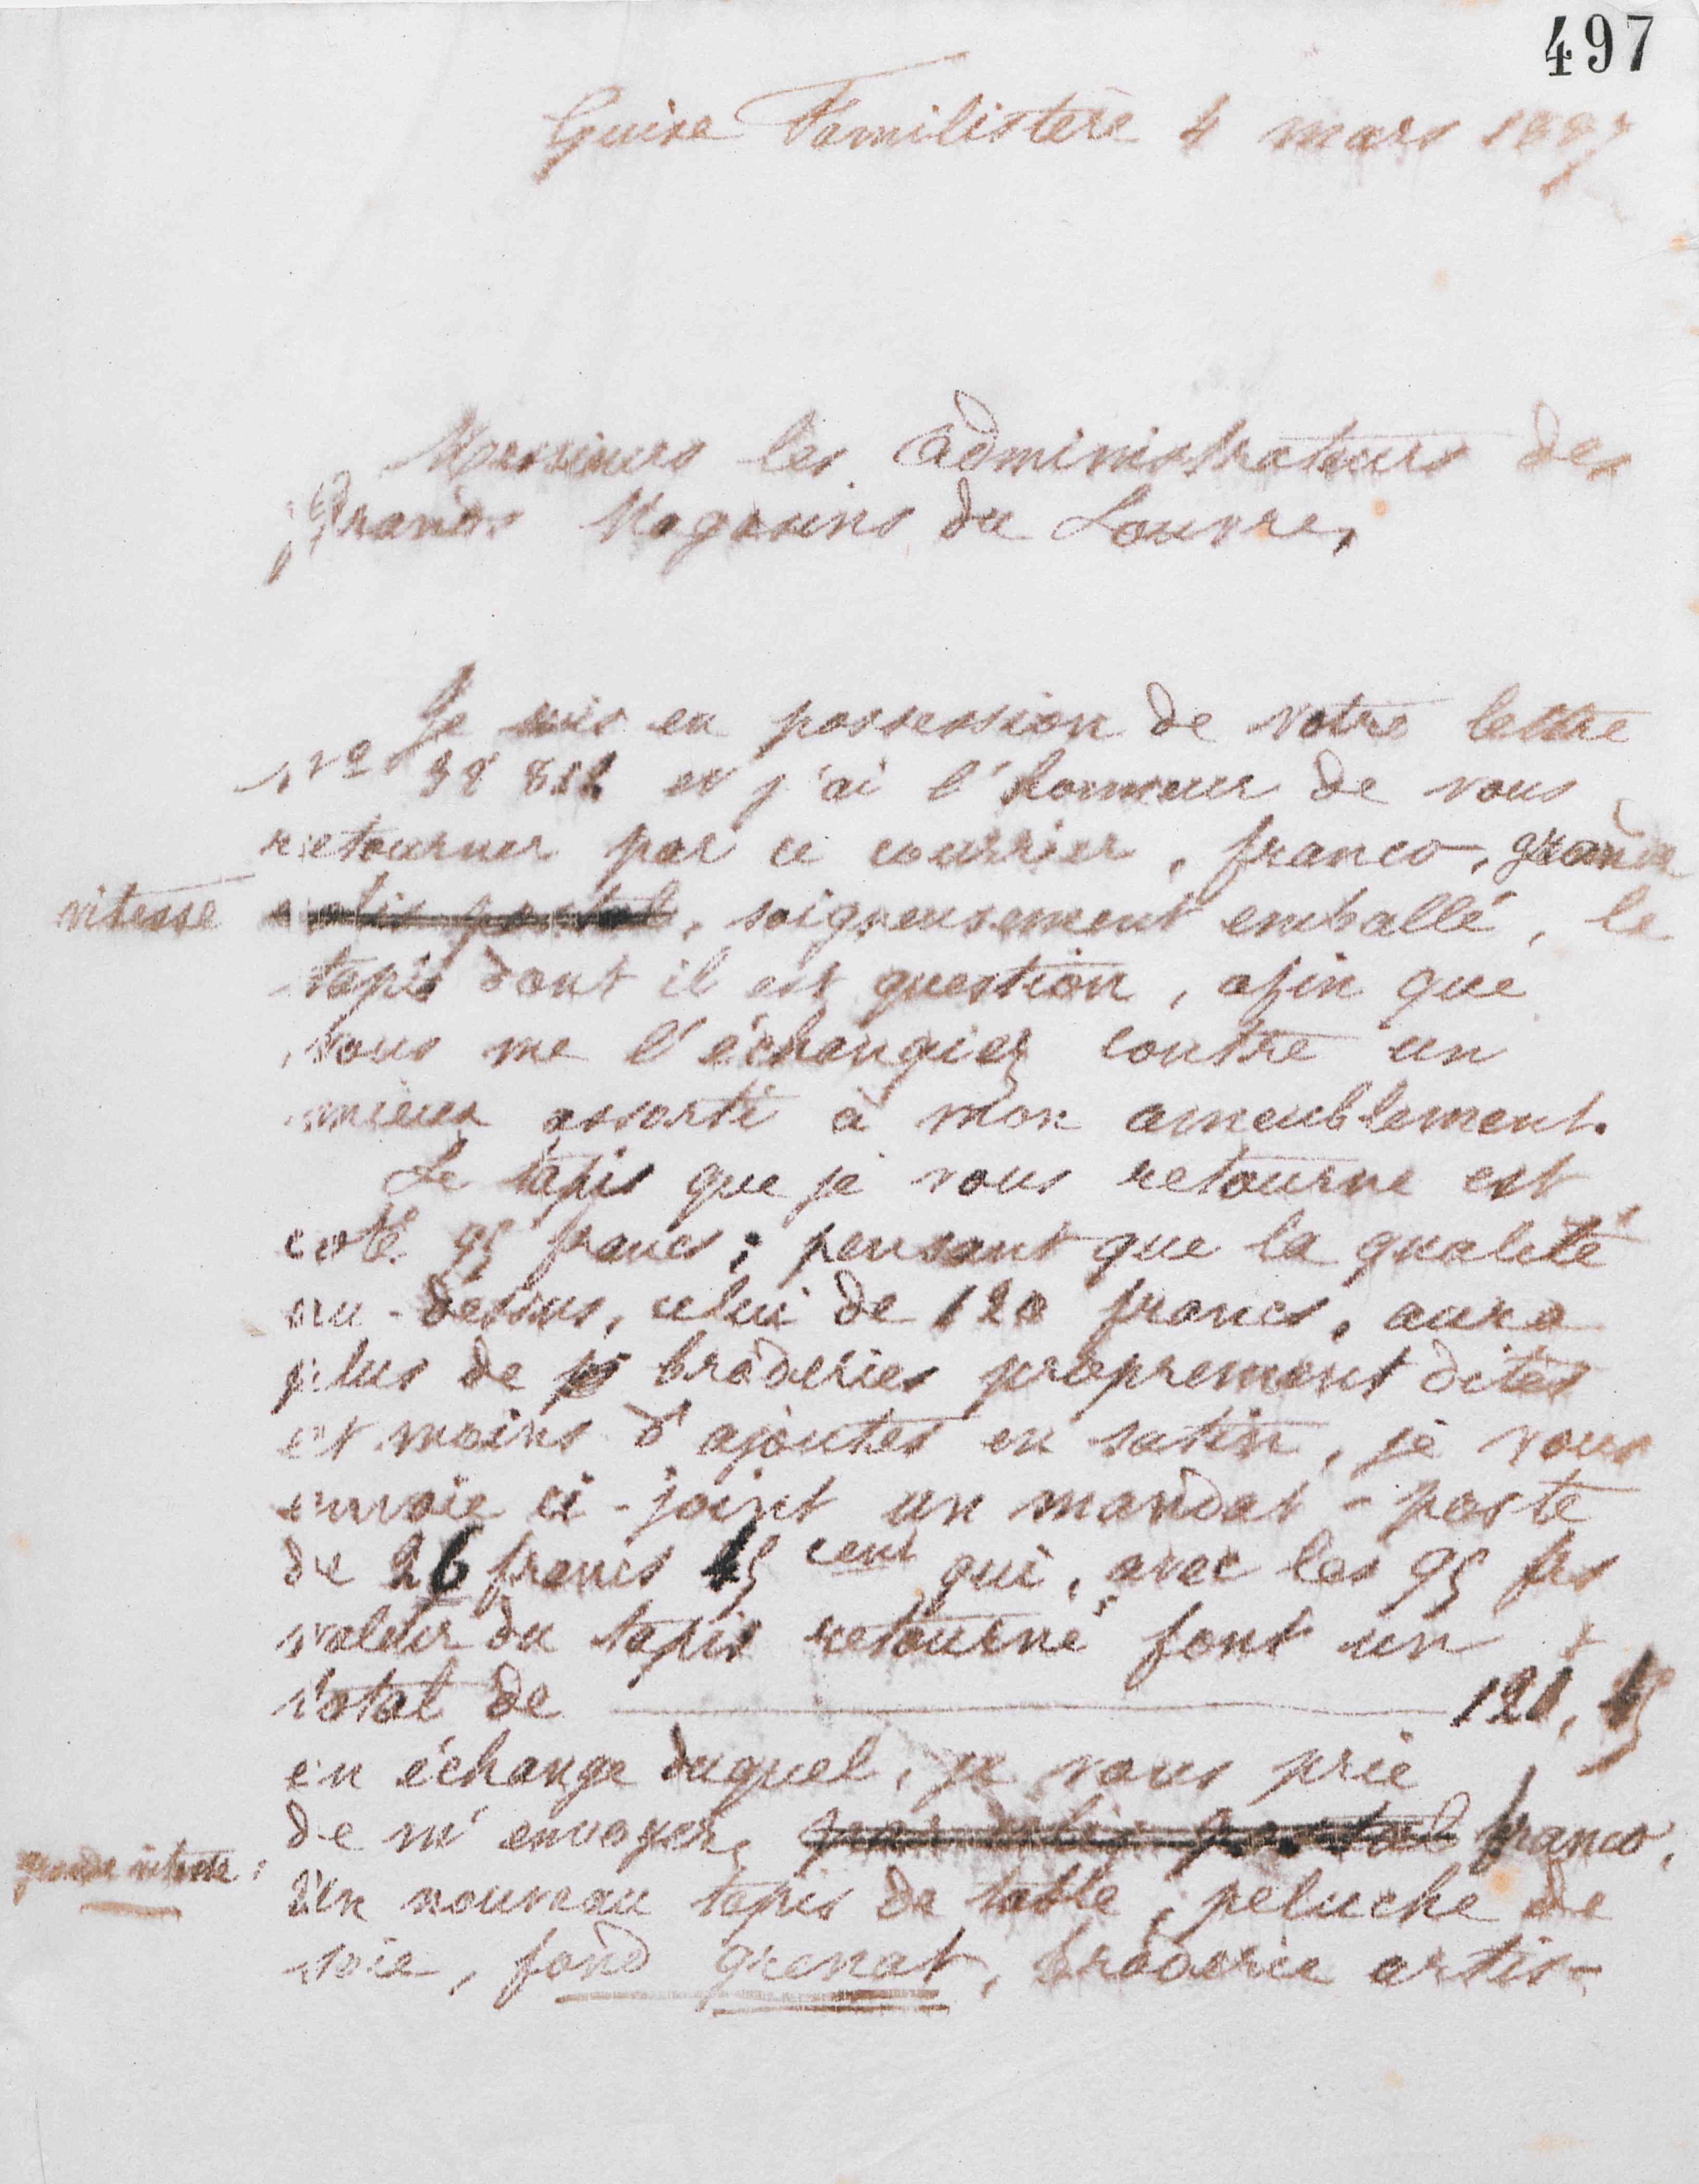 497
Guise Familistère 4 mars 1887
Messieurs les administrateurs des
Grands Magasins du Louvre,
Je suis en possession de votre lettre
et j'ai l'honneur de vous
retourner par ce courrier, franco, grande
vitesse colis postal, soigneusement emballé, le
tapis dont il est question, afin que
vous me l'échangiez contre un
mieux assorti à mon ameublement.
Le tapis que je vous retourne est
coté 95 francs; pensant que la qualité
au-dessus, celui de 120 francs, aura
plus de broderies proprement dites
et moins d'ajoutes en satin, je vous
envoie ci-joint un mandat-poste
de 26 francs 15 cent qui, avec les 95 frs
valeur du tapis retourné font un
total de 121,15
en échange duquel, je vous prie
de m'envoyer, par colis postal franco,
grande vitesse,
un nouveau tapis de table, peluche de
soie, fond grenat, broderie artis-